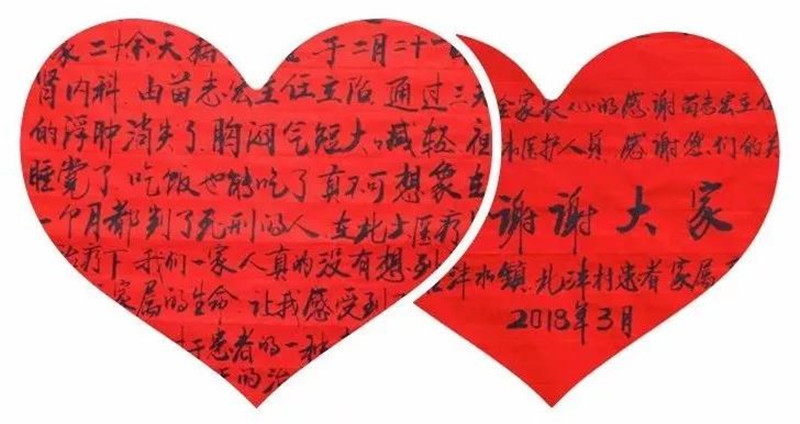 家二十余天 于二月二十一
肾内科,由苗志宏主任主治,通过三天
的浮肿消失了,胸闷气短大减轻,
睡觉了,吃饭也能吃了真不可想象在
一个月都判了死刑的人,在北大医疗
治疗下,我们一家人真的没有想到
家属的生命,让我感受到了
对于患者的一种
的治
全家衷心的感谢苗志宏主任
医护人员,感谢您们的关
谢谢大家
沣水镇,北沣村患者家属
2018年3月